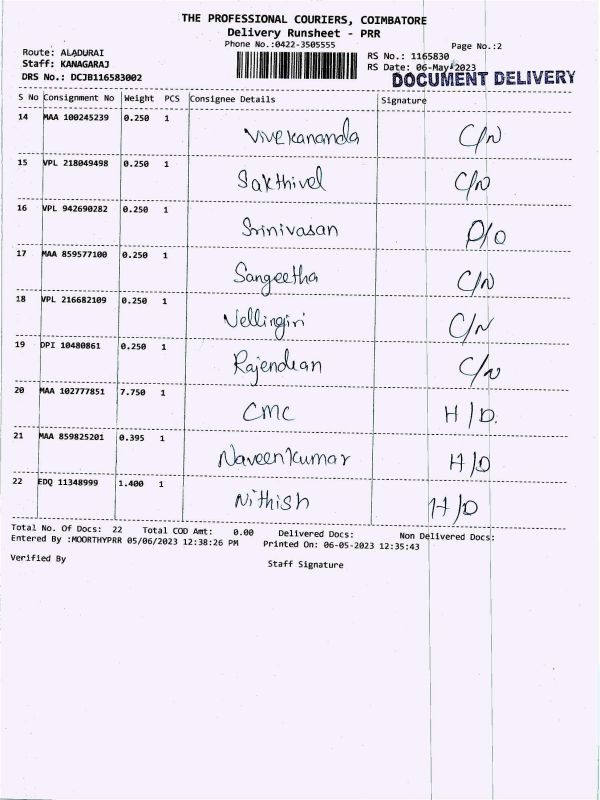 THE PROFESSIONAL COURIERS, COIMBATORE
Delivery Runsheet - PRR
Phone No.:0422-3505555
Page No.:2
Route: ALADURAI
RS No.: 1165830
Staff: KANAGARAJ
RS Date: 06-May-2023
DRS No.: DCJB116583002
DOCUMENT DELIVERY
S No Consignment No Weight PCS Consignee Details Signature
14 MAA 100245239 0.250 1
Vivekananda C/N
15 VPL 218049498 0.250 1
Sakthivel C/N
16 VPL 942690282 0.250 1
Srinivasan D/O
17 MAA 859577100 0.250 1
Sangeetha C/N
18 VPL 216682109 0.250 1
Vellingiri C/N
19 DPI 10480861 0.250 1
Rajendran C/N
20 MAA 102777851 7.750 1
CMC H/D.
21 MAA 859825201 0.395 1
Naveenkumar H/D
22 EDQ 11348999 1.400 1
Nithish H/D
Total No. Of Docs: 22 Total COD Amt: 0.00 Delivered Docs: Non Delivered Docs:
Entered By :MOORTHYPRR 05/06/2023 12:38:26 PM Printed On: 06-05-2023 12:35:43
Verified By
Staff Signature